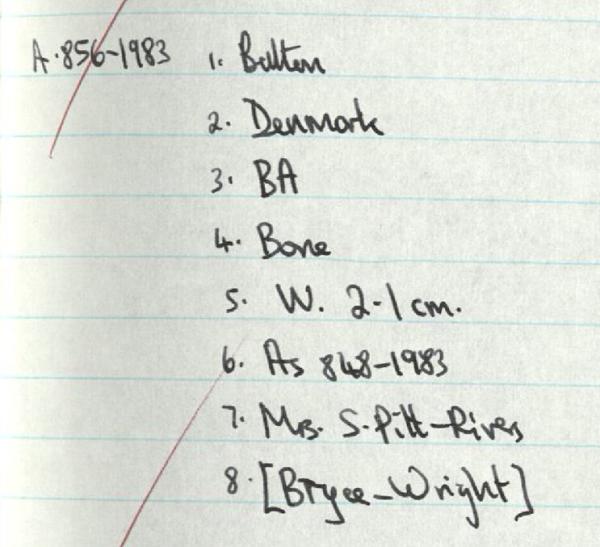 A.856-1983 1. Button
2. Denmark
3. BA
4. Bone
5. W. 2·1 cm.
6. As 848-1983
7. Mrs. S. Pitt-Rivers
8. [Bryce-Wright]